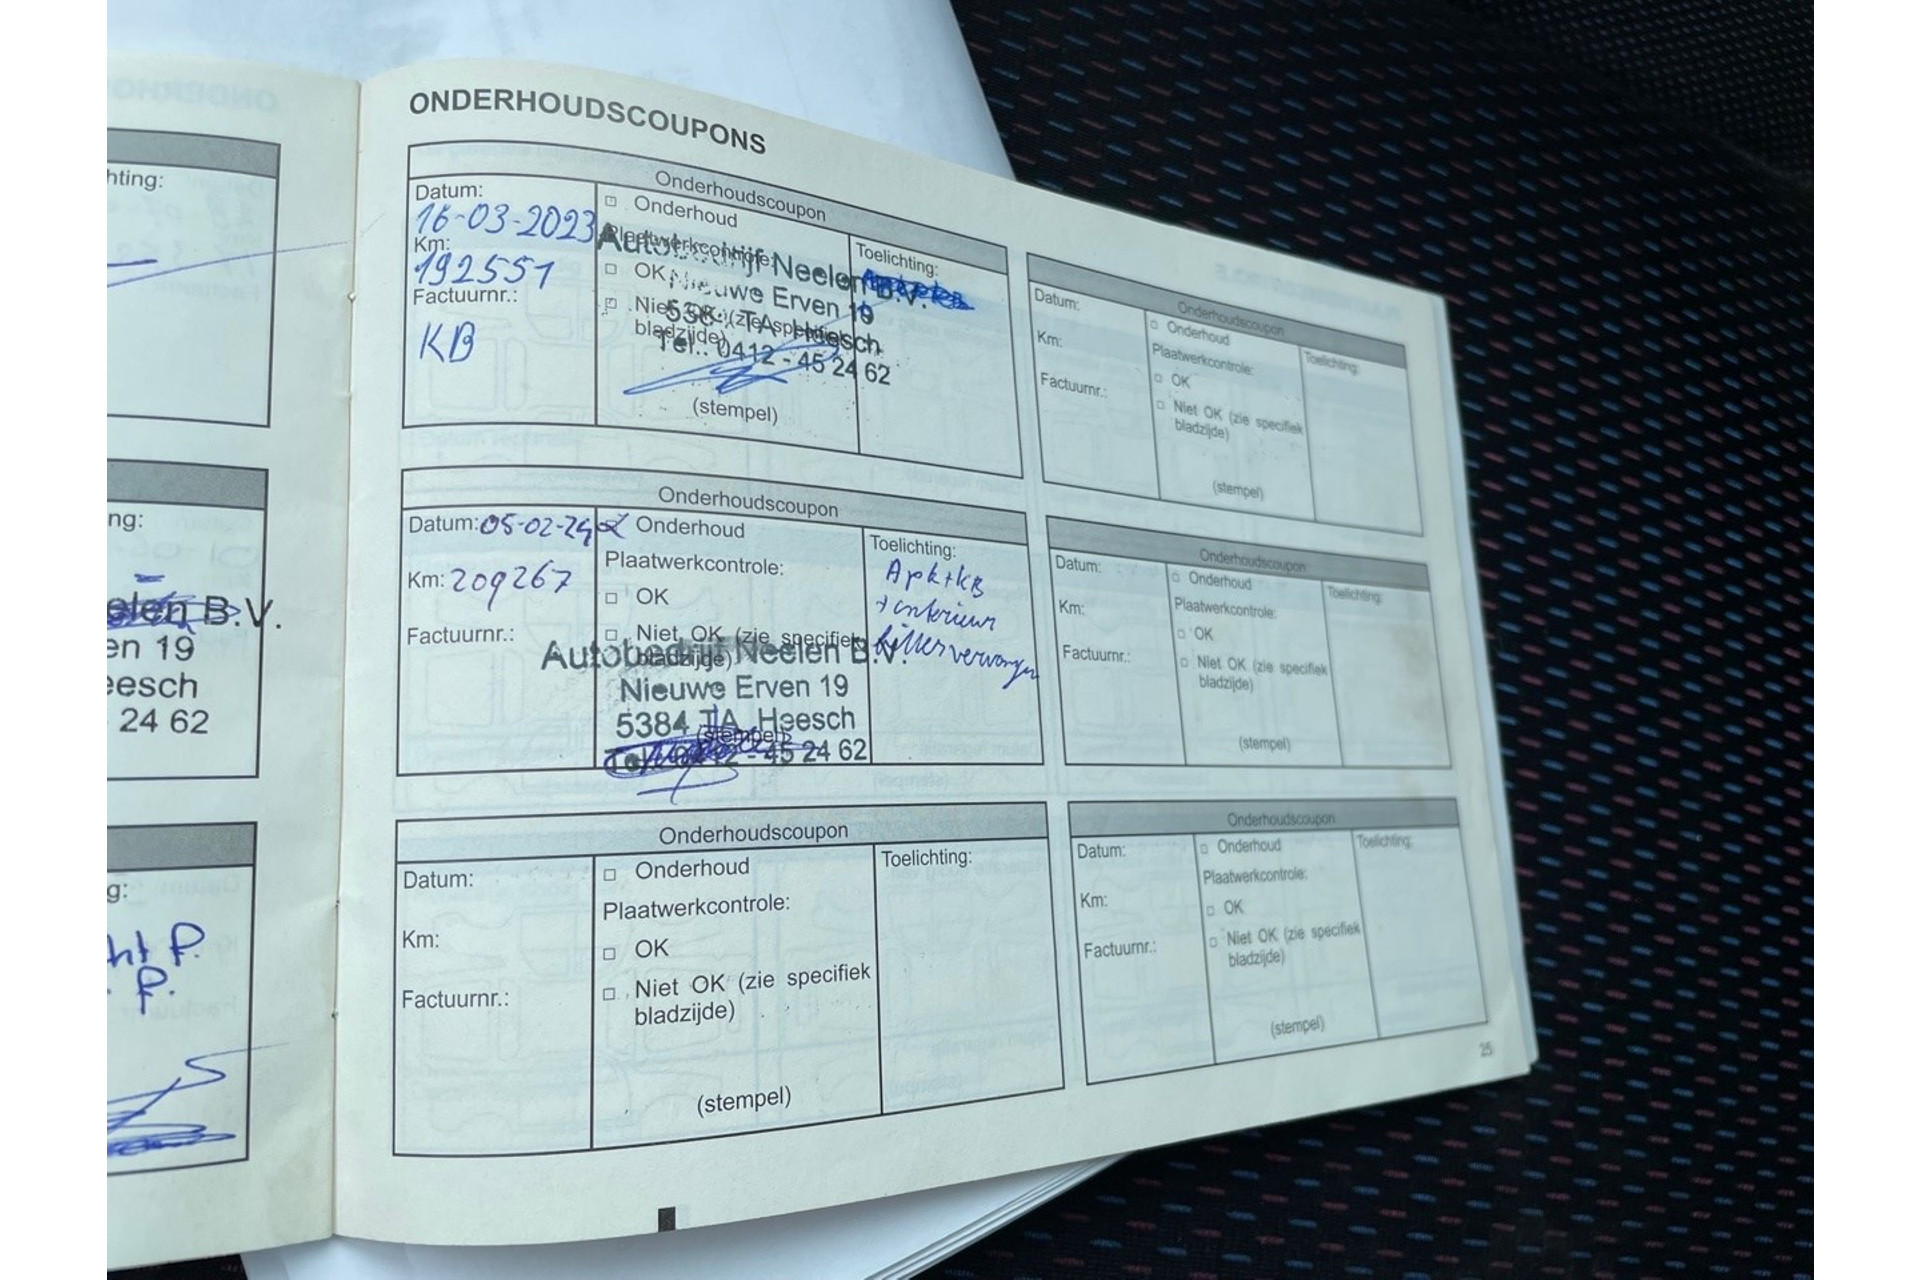 hting:
ng:
elen B.V.
en 19
eesch
24 62
g:
ht P.
P.
ONDERHOUDSCOUPONS
Onderhoudscoupon
Datum:
16-03-2023
Km:
192551
Factuurnr.:
KB
Onderhoud
Plaatwerkcontrole:
OK
Niet OK (zie specifiek
bladzijde)
Autobedrijf Neelen B.V.
Nieuwe Erven 19
TA Heesch
Tel.: 0412 - 45 24 62
(stempel)
Toelichting:
Onderhoudscoupon
Datum: 05-02-24
Km: 209267
Factuurnr.:
Onderhoud
Plaatwerkcontrole:
OK
Niet OK (zie specifiek
bladzijde)
Autobedrijf Neelen B.V.
Nieuwe Erven 19
5384 TA Heesch
(stempel)
Tel.: 0412 - 45 24 62
Toelichting:
Apk+KB
+interieur
filter vervangen
Onderhoudscoupon
Datum:
Km:
Factuurnr.:
Onderhoud
Plaatwerkcontrole:
OK
Niet OK (zie specifiek
bladzijde)
(stempel)
Toelichting:
Onderhoudscoupon
Datum:
Km:
Factuurnr.:
Onderhoud
Plaatwerkcontrole:
OK
Niet OK (zie specifiek
bladzijde)
(stempel)
Toelichting:
Onderhoudscoupon
Datum:
Km:
Factuurnr.:
Onderhoud
Plaatwerkcontrole:
OK
Niet OK (zie specifiek
bladzijde)
(stempel)
Toelichting:
Onderhoudscoupon
Datum:
Km:
Factuurnr.:
Onderhoud
Plaatwerkcontrole:
OK
Niet OK (zie specifiek
bladzijde)
(stempel)
Toelichting:
25